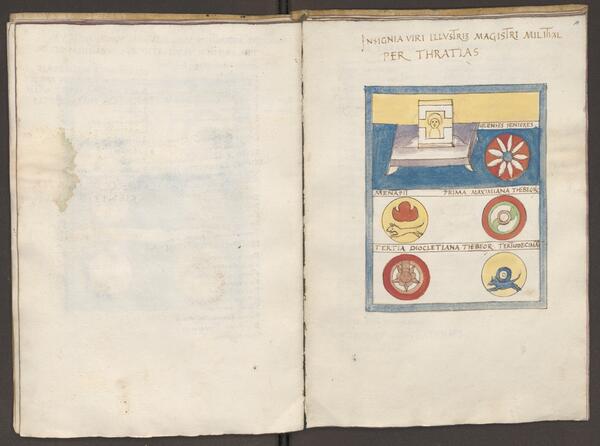 INSIGNIA VIRI ILLVSTRIS MAGISTRI MILITVM
PER THRATIAS
SOLENSES SENIORES
MENAPII PRIMA MAXIMIANA THEBEOR
TERTIA DIOCLETIANA THEBEOR TERTIODECIMANI